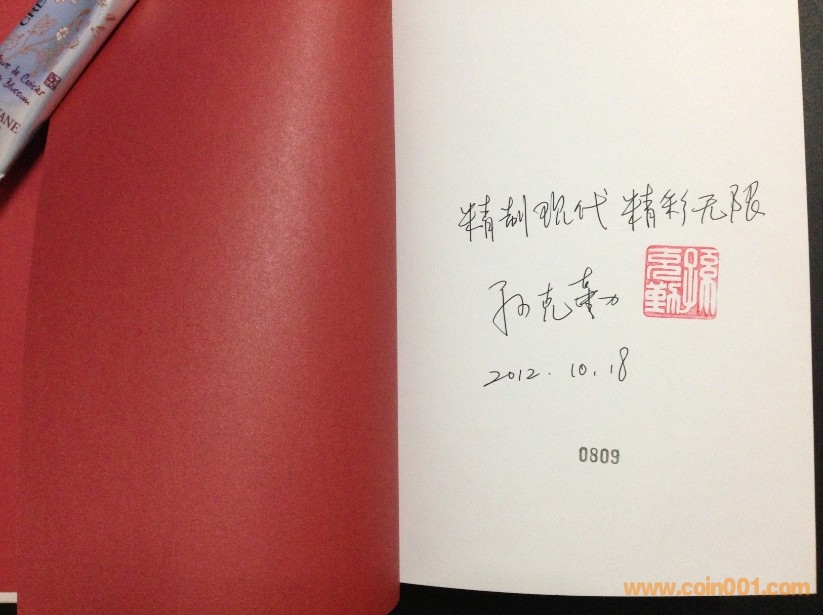 CRE
Fleur de Cerisier
Blossom
ANE
精制现代 精彩无限
孙克勤
孙克勤
2012.10.18
0809
www.coin001.com